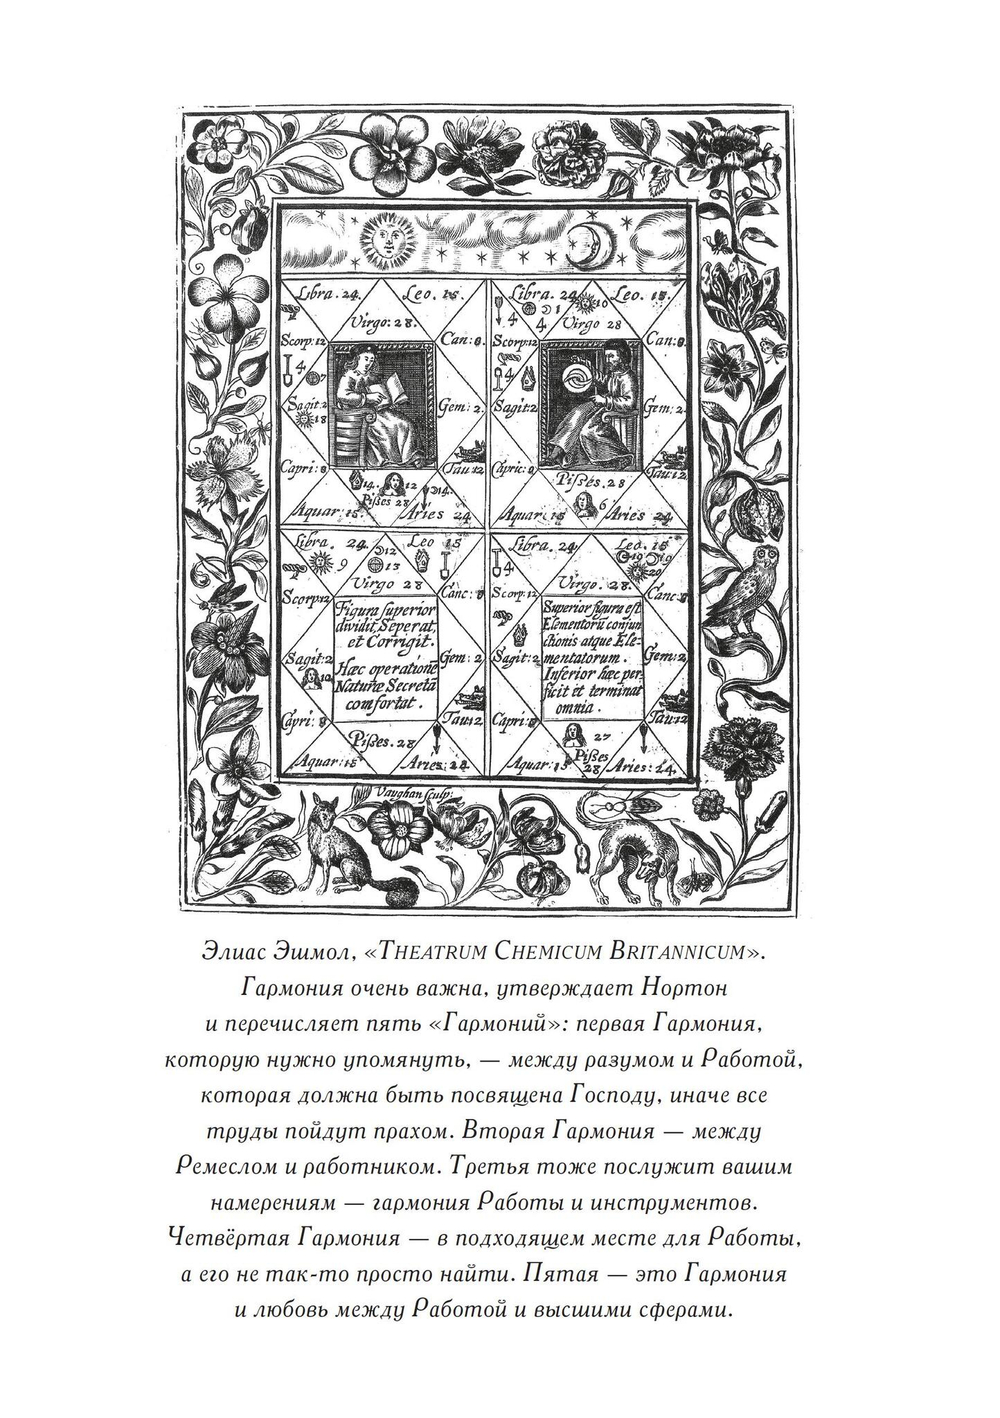 Libra. 24. Leo. 15.
Virgo: 28.
Scorp: 12 Can: 9.
4
7
Sagit: 2 Gem: 2.
18
Capri: 9 Tau: 12
14. 12
Pißes 28 14.
Aquar: 15. Aries 24
Libra. 24 10 Leo. 15.
4 1
4 Virgo 28
Scorp: 12 Can: 9.
4
Sagit: 2 Gem: 2.
Capric: 9 Tau: 12
Pißes. 28
6
Aquar: 15 Aries 24.
Libra. 24. Leo 15
9 12
13
Virgo 28
Scorp: 12 Canc: 9
Figura superior
dividit, Seperat,
et Corrigit.
Sagit: 2 Gem: 2
Hæc operationē
Naturæ Secretā
comfortat.
10
Capri: 9 Tau: 12
Pißes. 28
Aquar: 15 Aries: 24.
Libra. 24 Leo. 15
4 19 9
20
Virgo. 28.
Scorp: 12 Canc: 9
Superior figura est
Elementorū conjun
ctionis atque Ele-
mentatorum.
Sagit: 2 Gem: 2
Inferior hæc per
ficit et terminat
omnia.
Capri: 9 Tau: 12
27
Pißes
28
Aquar: 15 Aries: 24.
Vaughan sculp:
Элиас Эшмол, «THEATRUM CHEMICUM BRITANNICUM».
Гармония очень важна, утверждает Нортон
и перечисляет пять «Гармоний»: первая Гармония,
которую нужно упомянуть, — между разумом и Работой,
которая должна быть посвящена Господу, иначе все
труды пойдут прахом. Вторая Гармония — между
Ремеслом и работником. Третья тоже послужит вашим
намерениям — гармония Работы и инструментов.
Четвёртая Гармония — в подходящем месте для Работы,
а его не так-то просто найти. Пятая — это Гармония
и любовь между Работой и высшими сферами.